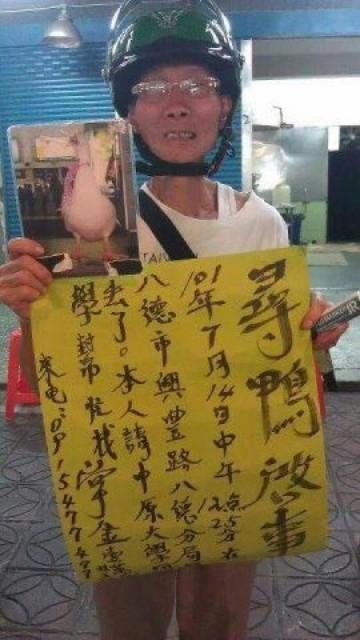 尋鴨啟事
101年7月14日中午 25分在
八德市興豐路八德分局
丟了。本人請中原大學同
學幫忙找賞金壹萬
來電: